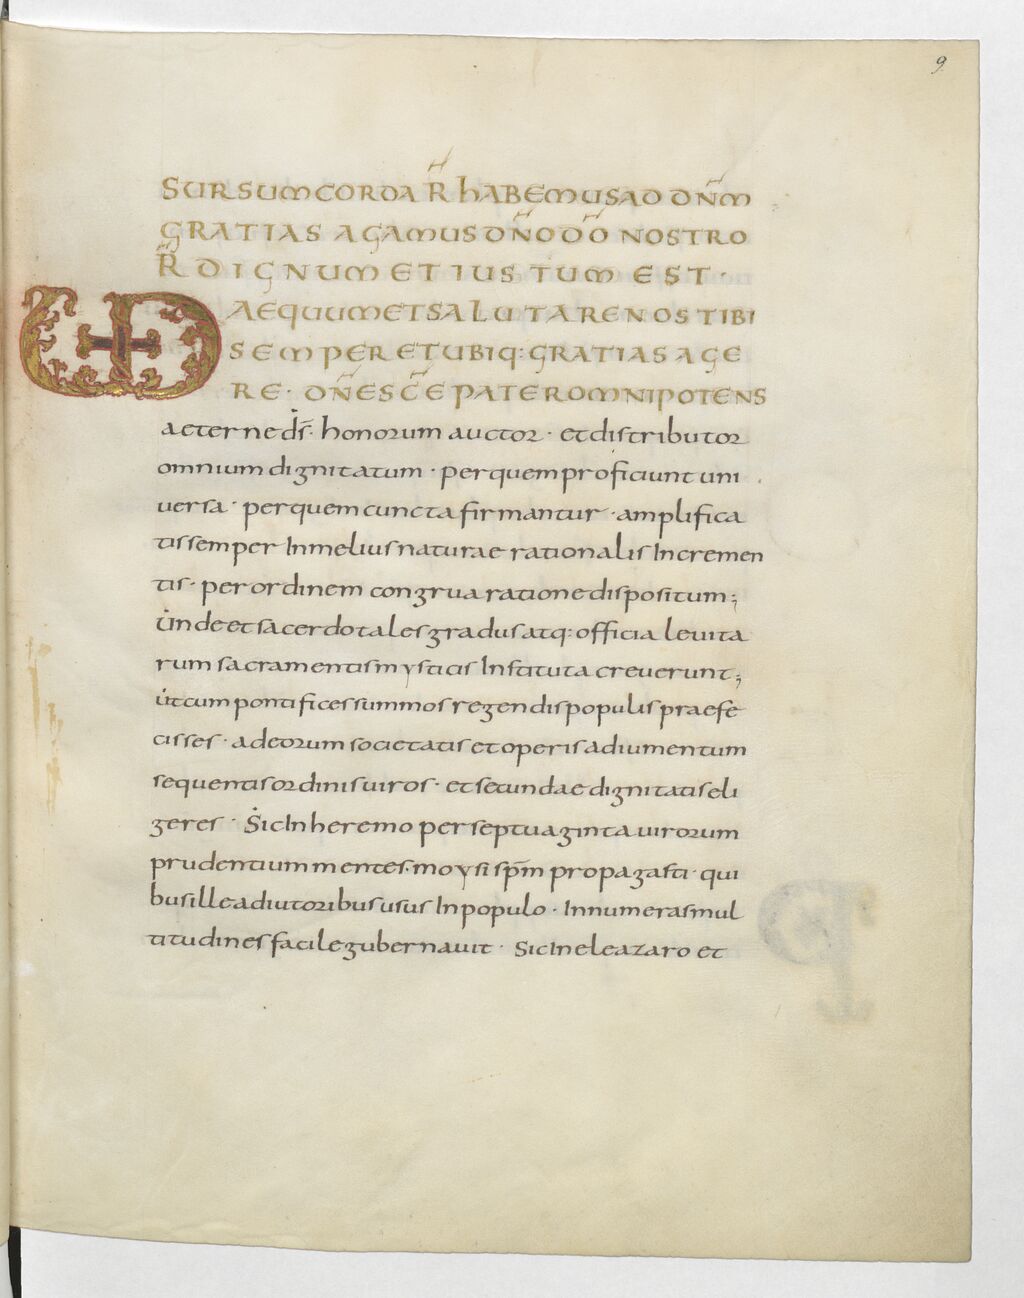 9
SURSUM CORDA R HABEMUS AD DN̄M
GRATIAS AGAMUS DN̄O DŌ NOSTRO
R DIGNUM ET IUSTUM EST ·
AEQUUM ET SALUTARE NOS TIBI
SEMPER ET UBIQ: GRATIAS AGE
RE · DN̄E SC̄E PATER OMNIPOTENS
aeterne ds̄ · honorum auctor · et distributor
omnium dignitatum · per quem proficiunt uni
versa · per quem cuncta firmantur · amplifica
tis semper In melius naturae rationalis Incremen
tis · per ordinem congrua ratione dispositum;
Unde et sacerdotales gradus atq: officia levita
rum sacramentis mysticis Instituta creverunt;
Ut cum pontifices summos regendis populis praefe
cisses · ad eorum societatis et operis adiumentum
sequentis ordinis viros · et secundae dignitatis eli
geres · Sic In heremo per septuaginta virorum
prudentium mentes · moysi sp̄m propagasti · qui
bus ille adiutoribus usus In populo · Innumeras mul
titudines facile gubernavit · Sic In eleazaro et